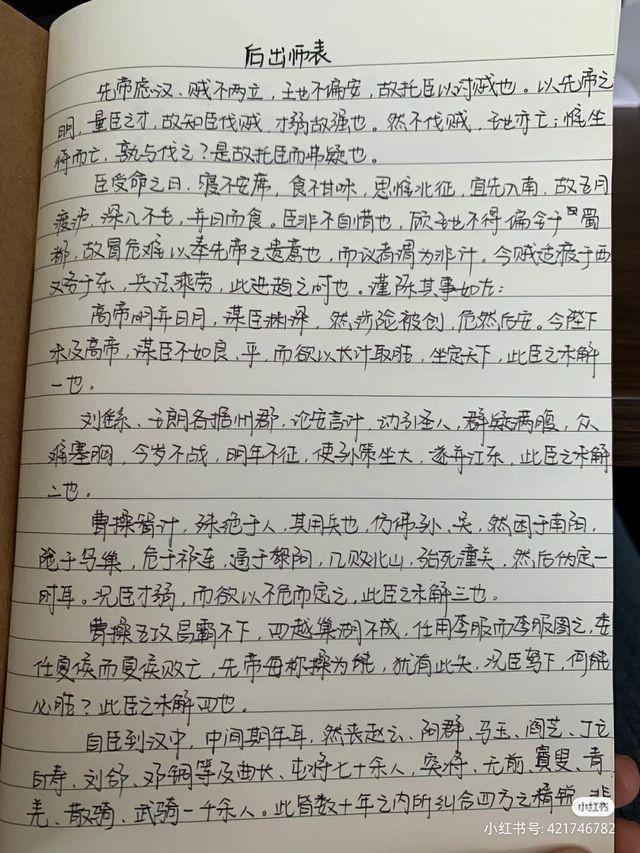 后出师表
先帝虑汉、贼不两立，王业不偏安，故托臣以讨贼也。以先帝之
明，量臣之才，故知臣伐贼，才弱敌强也。然不伐贼，王业亦亡；惟坐
待而亡，孰与伐之？是故托臣而弗疑也。
臣受命之日，寝不安席，食不甘味，思惟北征，宜先入南，故五月
渡泸，深入不毛，并日而食。臣非不自惜也，顾王业不得偏全于蜀
都，故冒危难以奉先帝之遗意也，而议者谓为非计。今贼适疲于西
又务于东，兵法乘劳，此进趋之时也。谨陈其事如左：
高帝明并日月，谋臣渊深，然涉险被创，危然后安。今陛下
未及高帝，谋臣不如良、平，而欲以长计取胜，坐定天下，此臣之未解
一也。
刘繇、王朗各据州郡，论安言计，动引圣人，群疑满腹，众
难塞胸，今岁不战，明年不征，使孙策坐大，遂并江东，此臣之未解
二也。
曹操智计，殊绝于人，其用兵也，仿佛孙、吴，然困于南阳，
险于乌巢，危于祁连，逼于黎阳，几败北山，殆死潼关，然后伪定一
时耳。况臣才弱，而欲以不危而定之，此臣之未解三也。
曹操五攻昌霸不下，四越巢湖不成，任用李服而李服图之，委
任夏侯而夏侯败亡，先帝每称操为能，犹有此失，况臣驽下，何能
必胜？此臣之未解四也。
自臣到汉中，中间期年耳，然丧赵云、阳群、马玉、阎芝、丁立
白寿、刘郃、邓铜等及曲长、屯将七十余人，突将、无前、賨叟、青
羌、散骑、武骑一千余人。此皆数十年之内所纠合四方之精锐，非
小红书
小红书号: 421746782